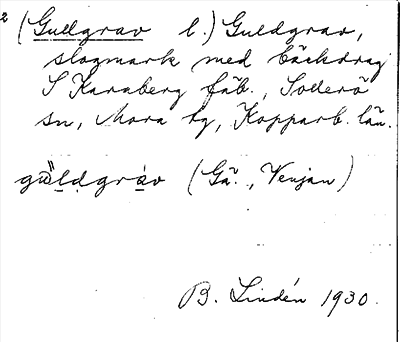 2 (Gullgrav l.) Guldgrav,
slogmark med bäckdrag
S Karaberg fäb., Sollerö
sn, Mora tg, Kopparb. län.
gŭldgràv (Gä., Venjan)
B. Lindén 1930.